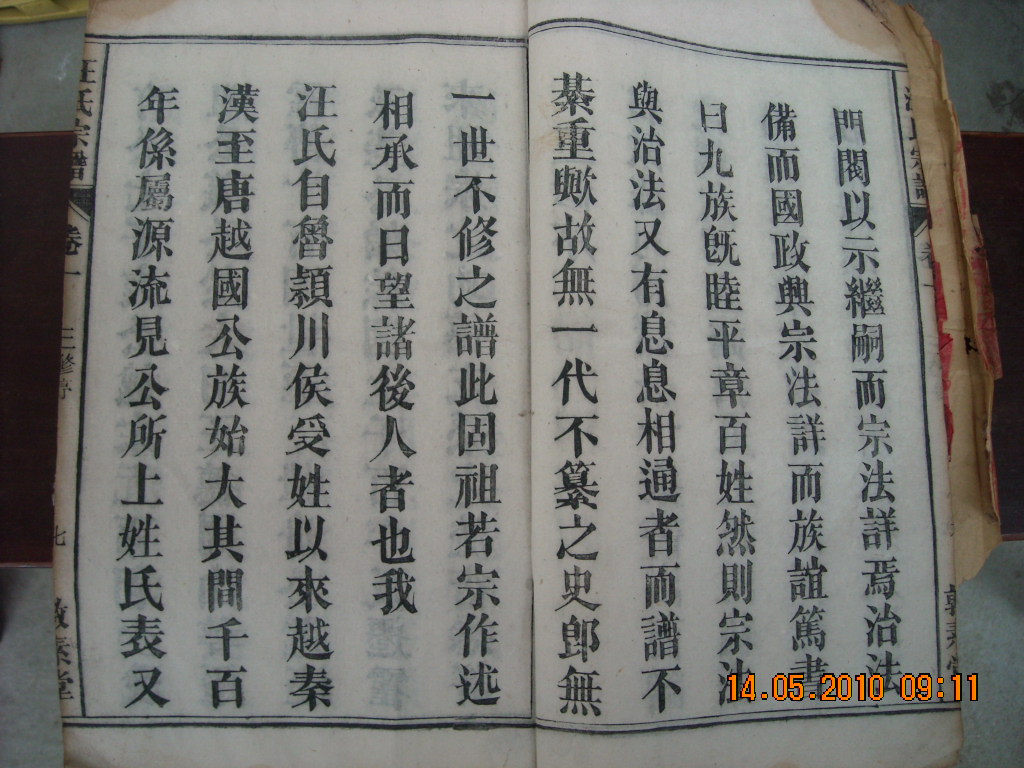 門閥以示繼嗣而宗法詳焉治法
備而國政興宗法詳而族誼篤書
曰九族旣睦平章百姓然則宗法
與治法又有息息相通者而譜不
綦重歟故無一代不纂之史郎無
一世不修之譜此固祖若宗作述
相承而日望諸後人者也我
汪氏自魯潁川侯受姓以來越秦
漢至唐越國公族始大其間千百
年係屬源流見公所上姓氏表又
汪氏宗譜 卷一 三修序 七 敦素堂
14.05.2010 09:11